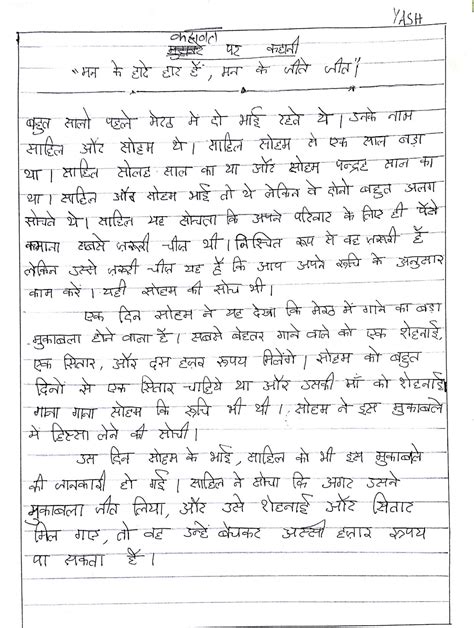 YASH
कहावत
पर कहानी
"मन के हारे हार हैं, मन के जीते जीत"।
बहुत सालो पहले मेरठ में दो भाई रहते थे। उनके नाम
साहिल और सोहम थे। साहिल सोहम से एक साल बड़ा
था। साहिल सोलह साल का था और सोहम पन्द्रह साल का
था। साहिल और सोहम भाई तो थे लेकिन वे दोनो बहुत अलग
सोचते थे। साहिल यह सोचता कि अपने परिवार के लिए ही पैसे
कमाना सबसे ज़रूरी चीज़ थी। निश्चित रूप से वह ज़रूरी है
लेकिन उससे ज़रूरी चीज़ यह है कि आप अपने रूचि के अनुसार
काम करें। यही सोहम की सोच थी।
एक दिन सोहम ने यह देखा कि मेरठ में गाने का बड़ा
मुकाबला होने वाला है। सबसे बेहतर गाने वाले को एक शेहनाई,
एक सितार, और दस हज़ार रूपय मिलेंगे। सोहम को बहुत
दिनों से एक सितार चाहिये था और उसकी माँ को शेहनाई
गाना गाना सोहम कि रूचि भी थी। सोहम ने इस मुकाबले
में हिस्सा लेने की सोची।
उस दिन सोहम के भाई, साहिल को भी इस मुकाबले
की जानकारी हो गई। साहिल ने सोचा कि अगर उसने
मुकाबला जीत लिया, और उसे शेहनाई और सितार
मिल गए, तो वह उन्हें बेचकर अस्सी हज़ार रूपय
पा सकता है।